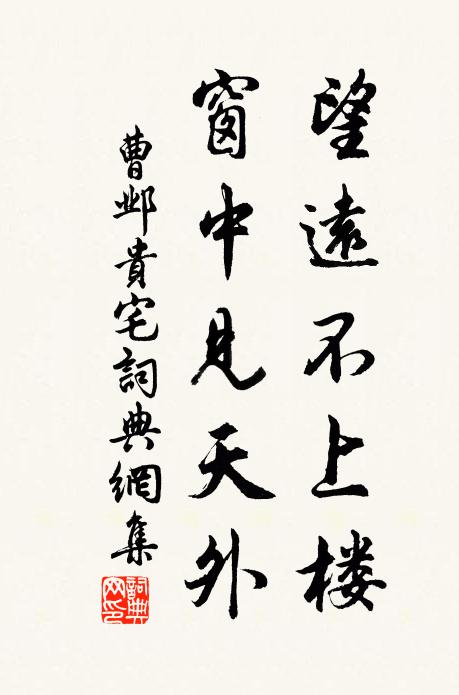 望遠不上楼
窗中見天外
曹邺貴宅詞典網集
詞典网印